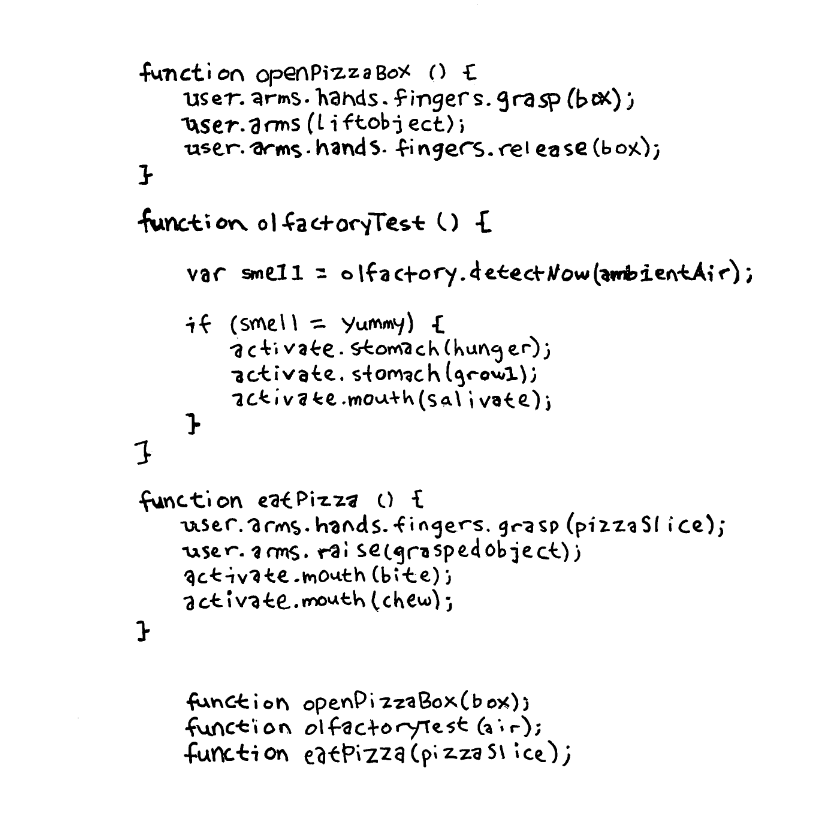 function openPizzaBox () {
user.arms.hands.fingers.grasp(box);
user.arms(liftobject);
user.arms.hands.fingers.release(box);
}
function olfactoryTest () {
var smell = olfactory.detectNow(ambientAir);
if (smell = yummy) {
activate.stomach(hunger);
activate.stomach(growl);
activate.mouth(salivate);
}
}
function eatPizza () {
user.arms.hands.fingers.grasp(pizzaSlice);
user.arms.raise(graspedobject);
activate.mouth(bite);
activate.mouth(chew);
}
function openPizzaBox(box);
function olfactoryTest(air);
function eatPizza(pizzaSlice);